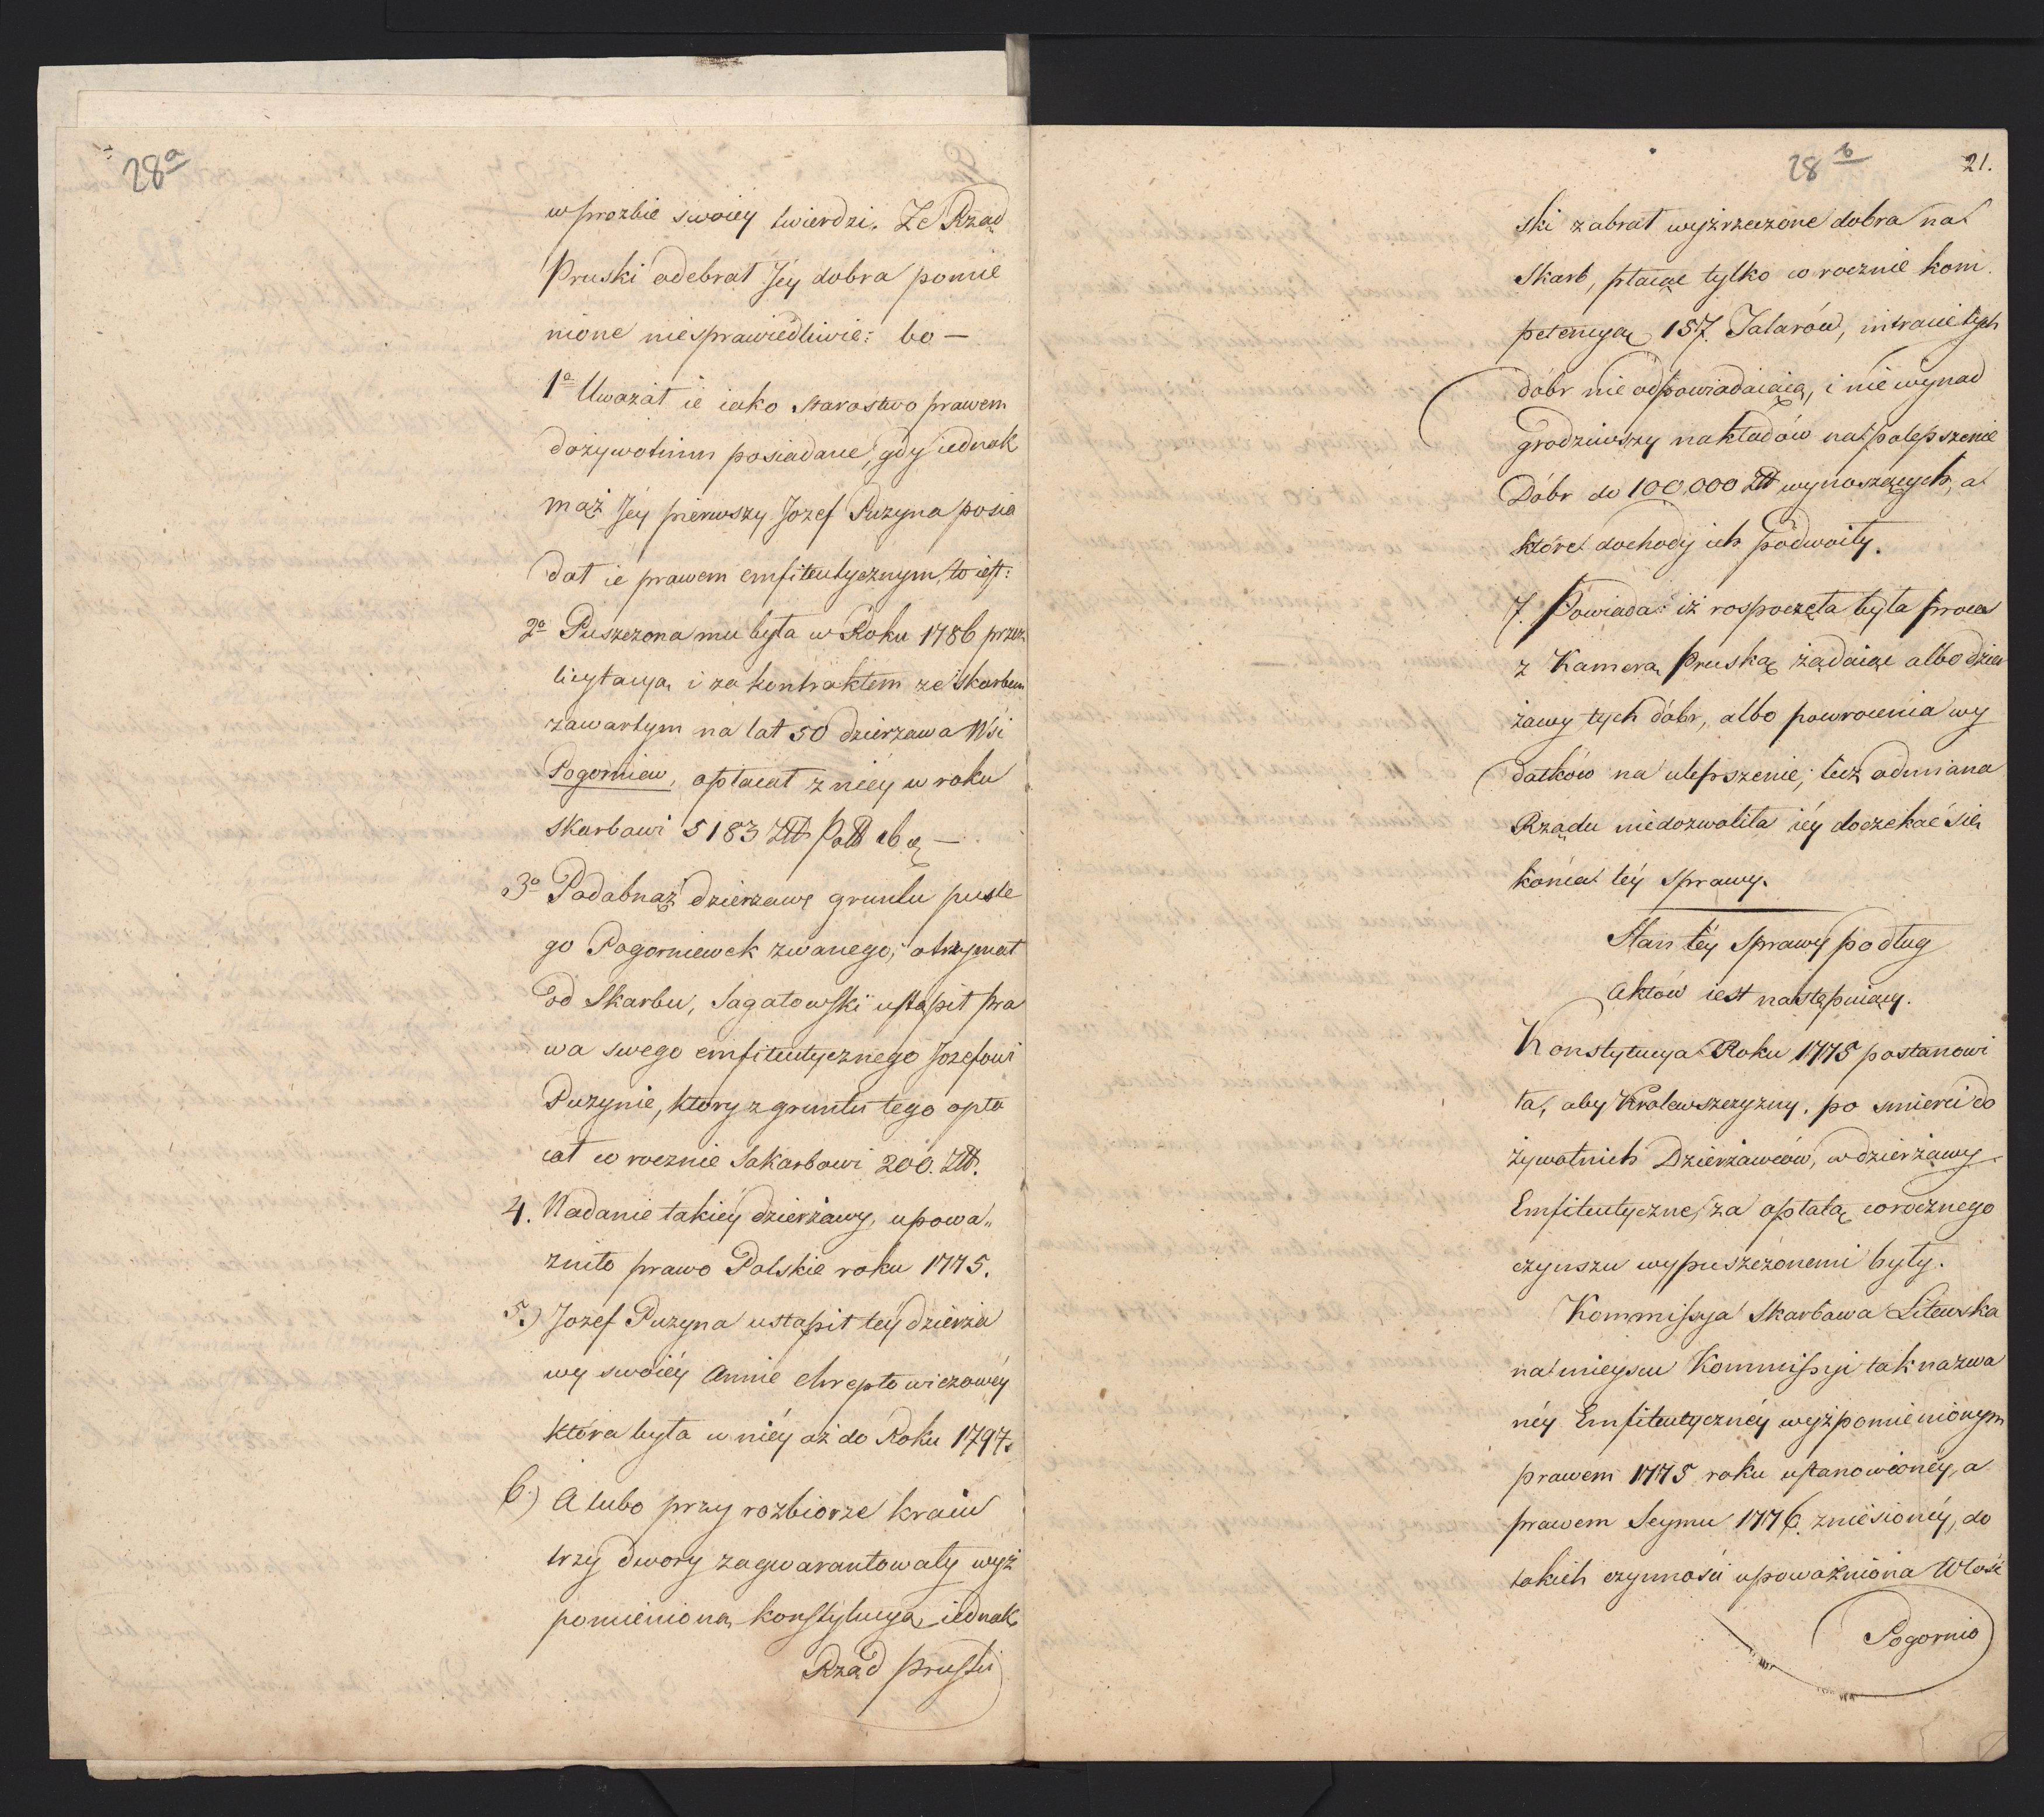 28a
w prozbie swoiey twierdzi. Ze Rząd
Pruski odebrał Jéy dobra pomie
nione niesprawiedliwie: bo —
1o Uważał ie iako Starostwo prawem
dożywotnim posiadane, gdy iednak
mąż Jéy pierwszy Jozef Puzyna posia
dał ie prawem emfiteutycznym, to iest:
2o Puszczona mu była w Roku 1786 przez
licytacyą i za kontraktem ze Skarbem
zawartym na lat 50 dzierzawa Wsi
Pogorniew, opłacał z niéy w roku
Skarbowi 5183 Złł
3o Podobnąż dzierzawę gruntu puste
go Pogorniewek zwanego, otrzymał
od Skarbu, Sagatowski ustąpił pra
wa swego emfiteutycznego Jozefowi
Puzynie, ktory z gruntu tego opła
cał co rocznie Sakarbowi 200. Złł.
4. Nadanie takiéy dzierżawy, upowa„
zniło prawo Polskie roku 1775.
5.) Jozef Puzyna ustąpił téy dzierża
wy swoiéy Annie Chreptowiczowéy
która była w niéy aż do Roku 1797.
6.) A lubo przy rozbiorze kraiu
trzy dwory zagwarantowały wyż
pomienioną konstytucyą, iednak
Rząd Pruski
28b
21.
ski zabrał wyżrzeczone dobra na
Skarb, płacąc tylko co rocznie kom
petencyą 157. Talarów, intracie tych
dóbr nie odpowiadaiącą, i nie wynad
grodziwszy nakładów na polepszenie
Dóbr do 100,000 Złł wynoszących, a
które dochody ich podwoiły.
7. Powiada: iż rospoczęta była proces
z Kamerą Pruską żądaiąc albo dzier
żawy tych dóbr, albo powrocenia wy
datków na ulepszenie; lecz odmiana
Rządu niedozwoliła iéy doczekać się
końca téy sprawy.
Stan téy Sprawy podług
Aktów iest następuiący.
Konstytucya Roku 1775 postanowi
ła, aby Krolewszczyzny, po śmierci do
żywotnich Dzierżawców, w dzierżawy
Emfiteutyczne, za opłatą corocznego
czynszu wypuszczonemi były.
Kommissya Skarbowa Litewska
na mieyscu Kommissyi tak nazwa
néy Emfiteutycznéy wyżpomienionym
prawem 1775 roku ustanowionéy, a
prawem Seymu 1776. zniesionéy, do
takich czynności upoważniona Włość
Pogornio